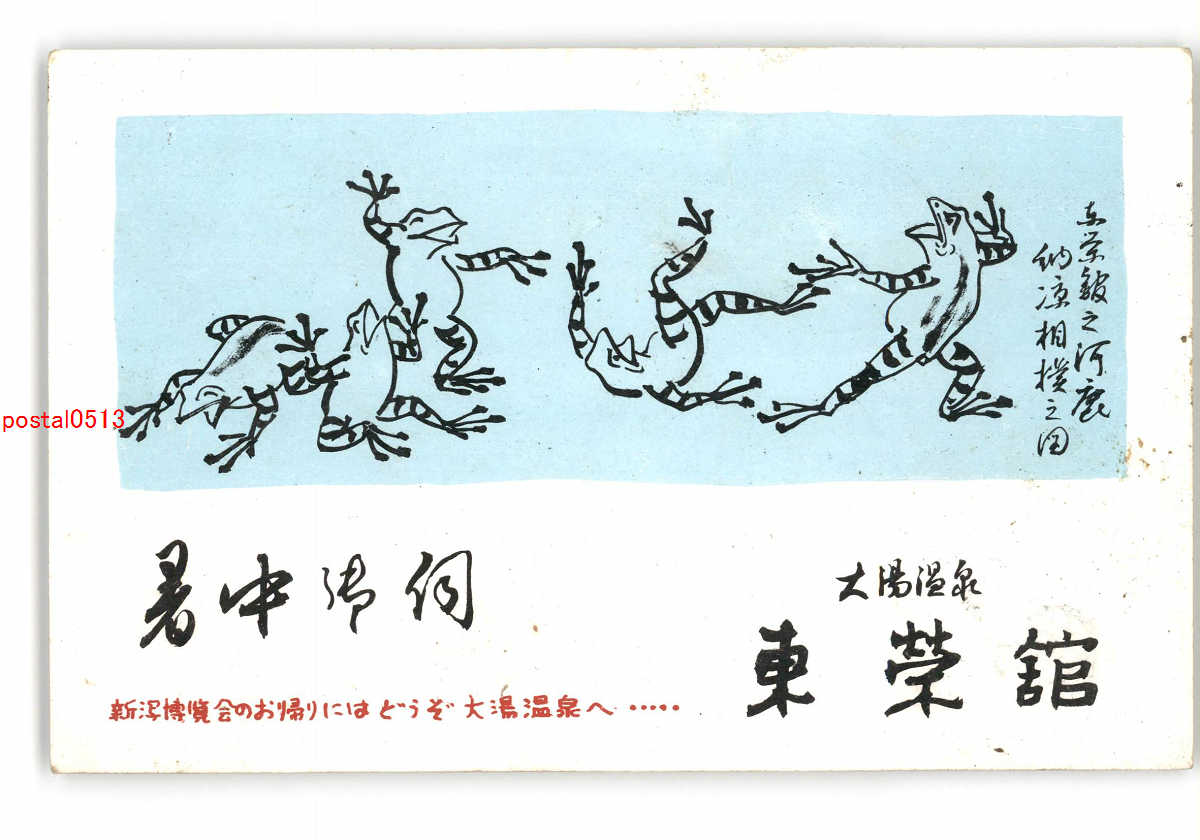 東栄館之河鹿
納凉相撲之図
postal0513
暑中御伺
大湯温泉
東榮舘
新泻博覧会のお帰りにはどうぞ大湯温泉へ・・・・・